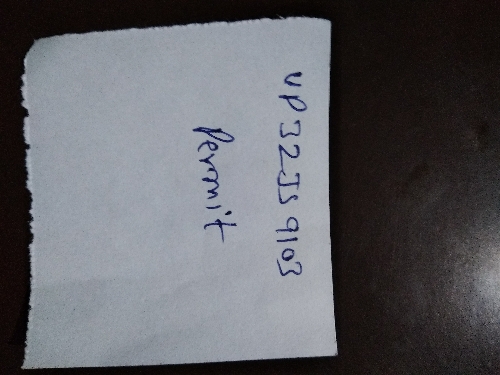 UP32JS9103
Permit